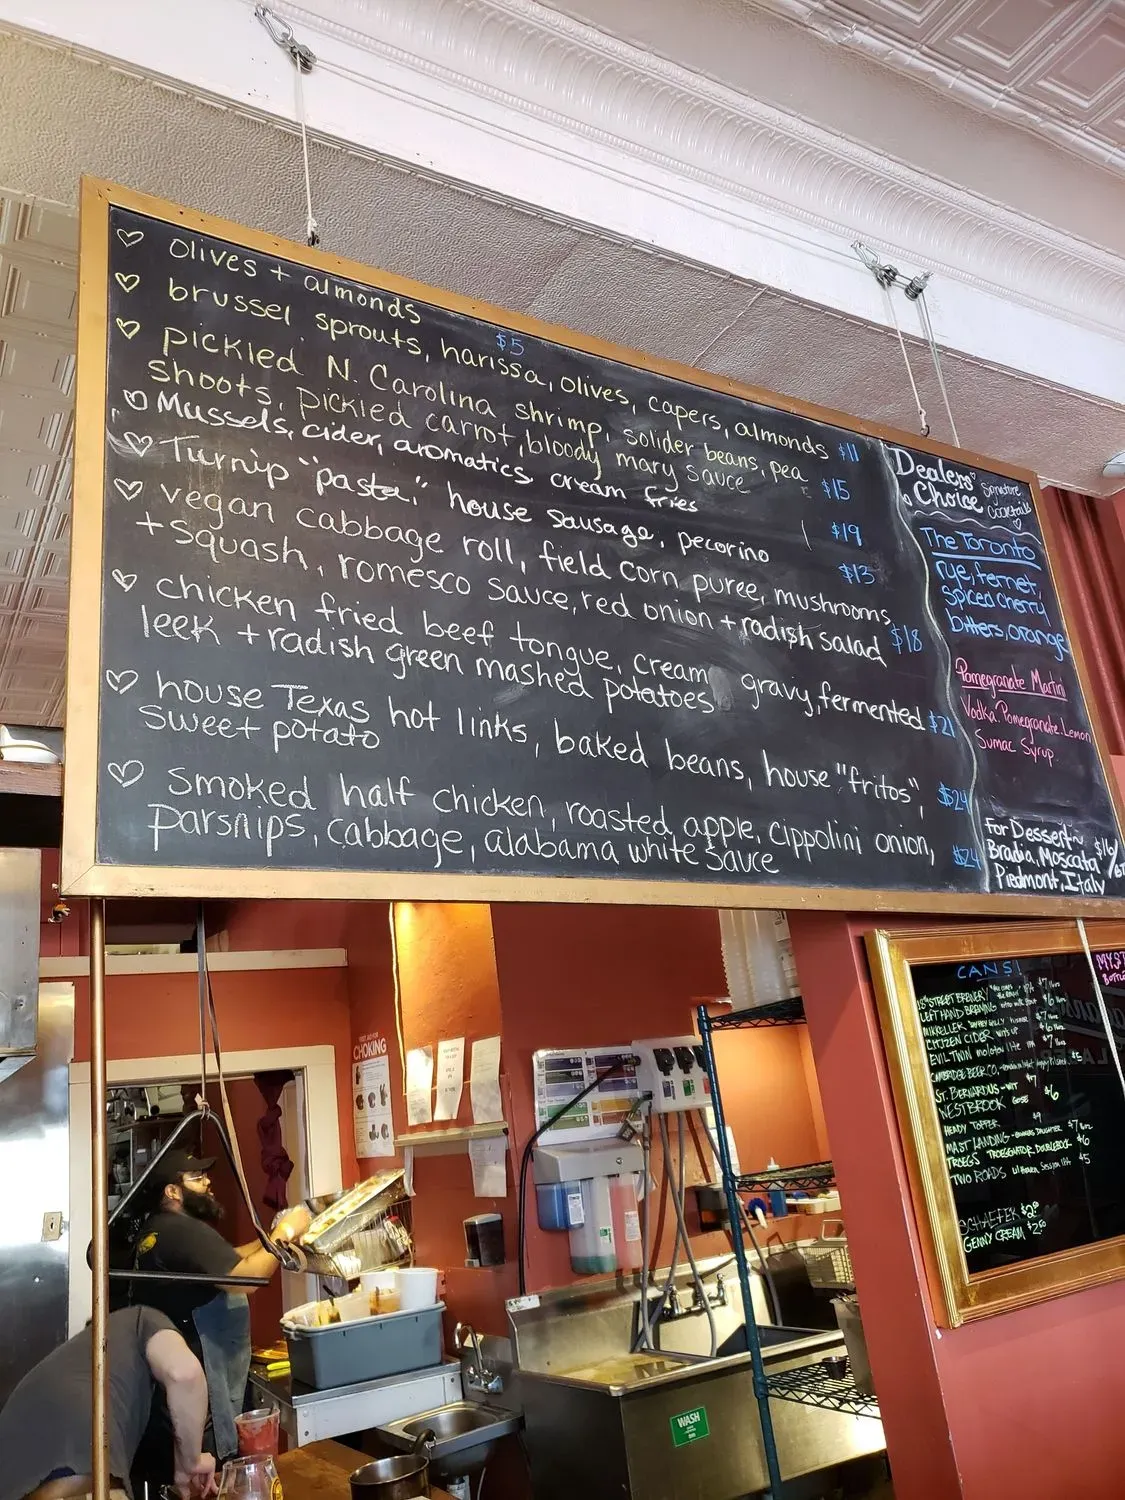 ♡ olives + almonds $5
♡ brussel sprouts, harissa, olives, capers, almonds $11
♡ pickled N. Carolina shrimp, solider beans, pea
shoots, pickled carrot, bloody mary sauce $15
♡ Mussels, cider, aromatics, cream fries $19
♡ Turnip "pasta," house sausage, pecorino $13
♡ vegan cabbage roll, field corn puree, mushrooms
+ squash, romesco sauce, red onion + radish salad $18
♡ chicken fried beef tongue, cream gravy, fermented
leek + radish green mashed potatoes $21
♡ house Texas hot links, baked beans, house "fritos",
sweet potato $24
♡ smoked half chicken, roasted apple, cippolini onion,
parsnips, cabbage, alabama white sauce $24
Dealers
Choice
Signature
Cocktails
♡
The Toronto
rye, fernet,
spiced cherry
bitters, orange
Pomegranate Martini
Vodka, Pomegranate, Lemon
Sumac Syrup
For Dessert~ $16/
Bradia, Moscata
Piedmont, Italy
CHOKING
WASH
CANS!
STREET BREWERY
LEFT HAND BREWING
MIKKELLER
CITIZEN CIDER
EVIL TWIN
CAMBRIDGE BEER CO.
ST. BERNARDUS - WIT $7
WESTBROOK GOSE $6
HEADY TOPPER $9
MAST LANDING
TROEGS TROEGENATOR DOUBLEBOCK $6
TWO ROADS $5
SCHAEFER $2
GENNY CREAM $2